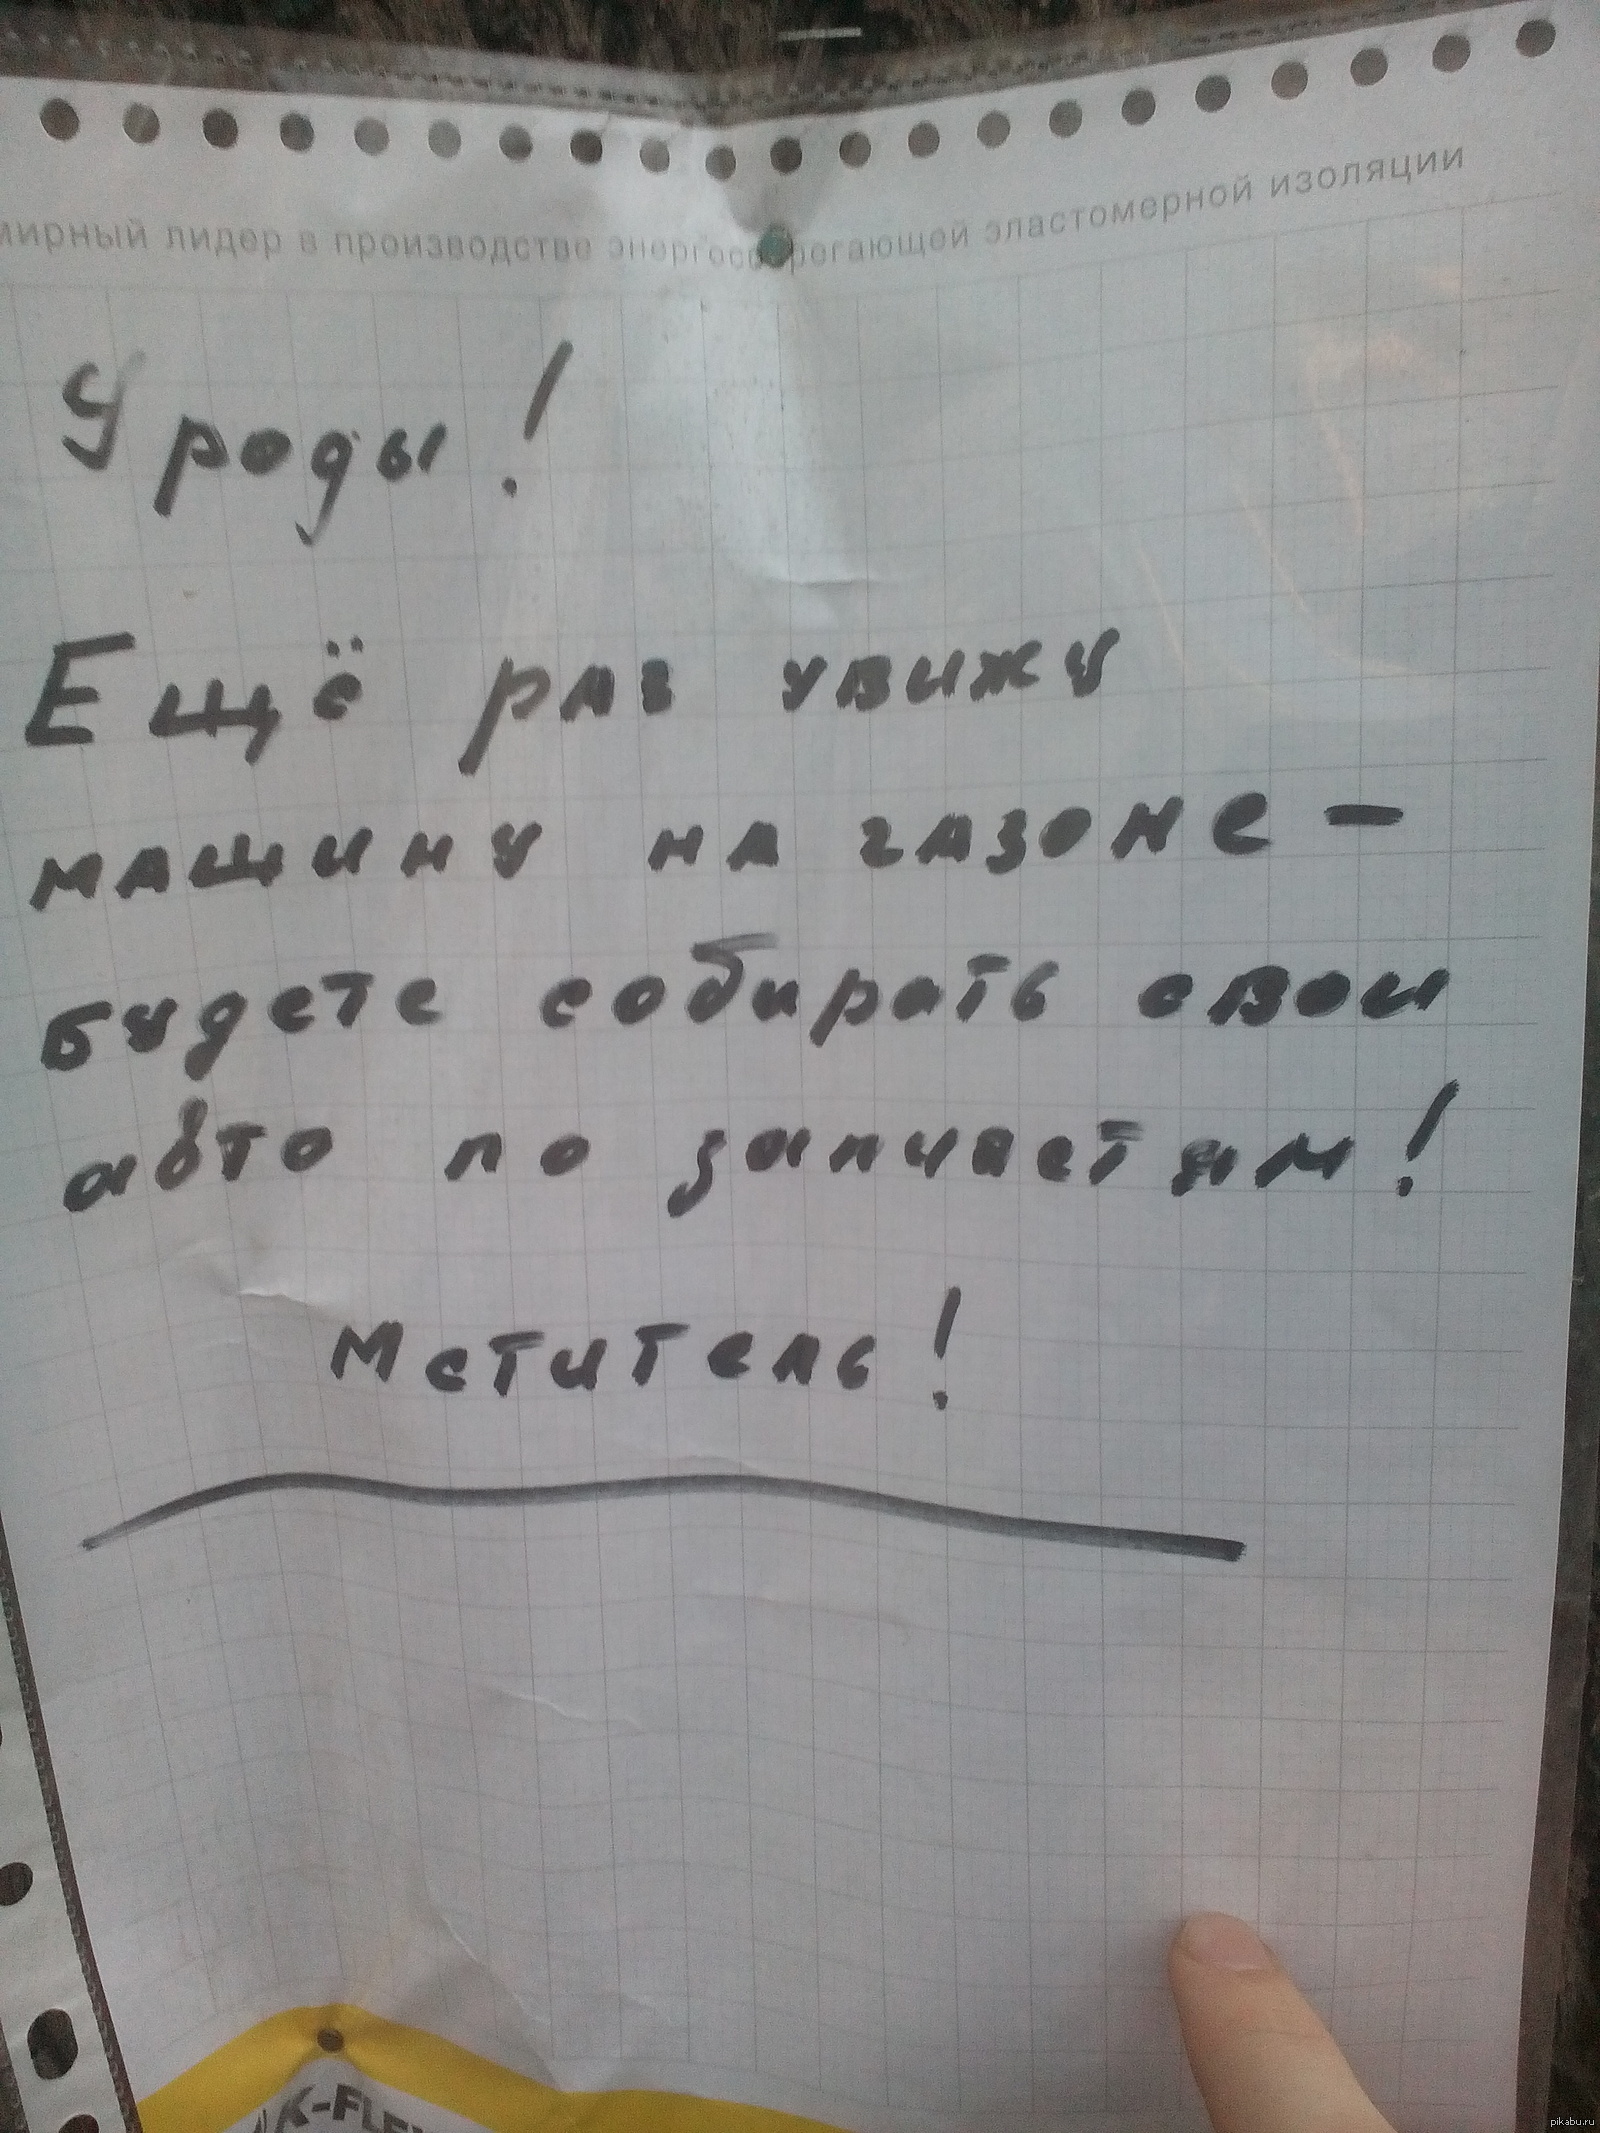 мирный лидер в производстве энергосберегающей эластомерной изоляции
Уроды!
Ещё раз увижу
машину на газоне -
будете собирать свои
авто по запчастям!
Мститель!
K-FLE
pikabu.ru